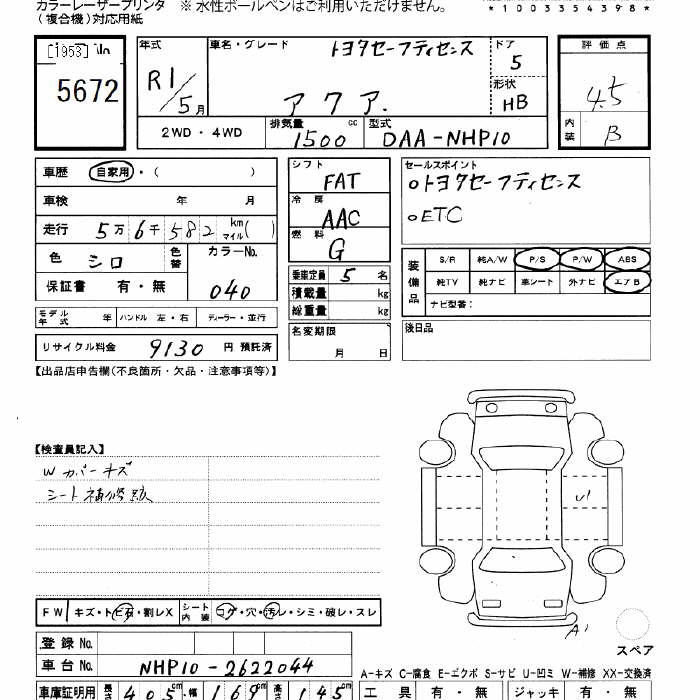 カラーレーザープリンタ ※ 水性ボールペンはご利用いただけません。
(複合機)対応用紙
*1003354398*
[1953]
5672
年式 R1/5月
車名・グレード トヨタセーフティセンス
アクア.
ドア 5
形状 HB
2WD ・ 4WD
排気量 1500 cc
型式 DAA-NHP10
評価点 4.5
内装 B
車歴 自家用・( )
車検 年 月
走行 5万6千582 km マイル( )
色 シロ 色番 カラーNo. 040
保証書 有・無
モデル年式 年 ハンドル 左・右 ディーラー・並行
リサイクル料金 9130 円 預託済
シフト FAT
冷房 AAC
燃料 G
乗車定員 5 名
積載量 kg
総重量 kg
名変期限 月 日
セールスポイント
○トヨタセーフティセンス
○ETC
装備品 S/R 純A/W P/S P/W ABS
純TV 純ナビ 革シート 外ナビ エアB
ナビ型番:
後日品
【出品店申告欄(不良箇所・欠品・注意事項等)】
【検査員記入】
Wカバーキズ
シート補修跡
U1
A1
スペア
FW キズ・トビ石・割レX シート内装 コゲ・穴・汚レ・シミ・破レ・スレ
登録 No.
車台 No. NHP10-2622044
車庫証明用 長さ 405cm 幅 169cm 高さ 145cm
A-キズ C-腐食 E-エクボ S-サビ U-凹ミ W-補修 XX-交換済
工具 有・無 ジャッキ 有・無